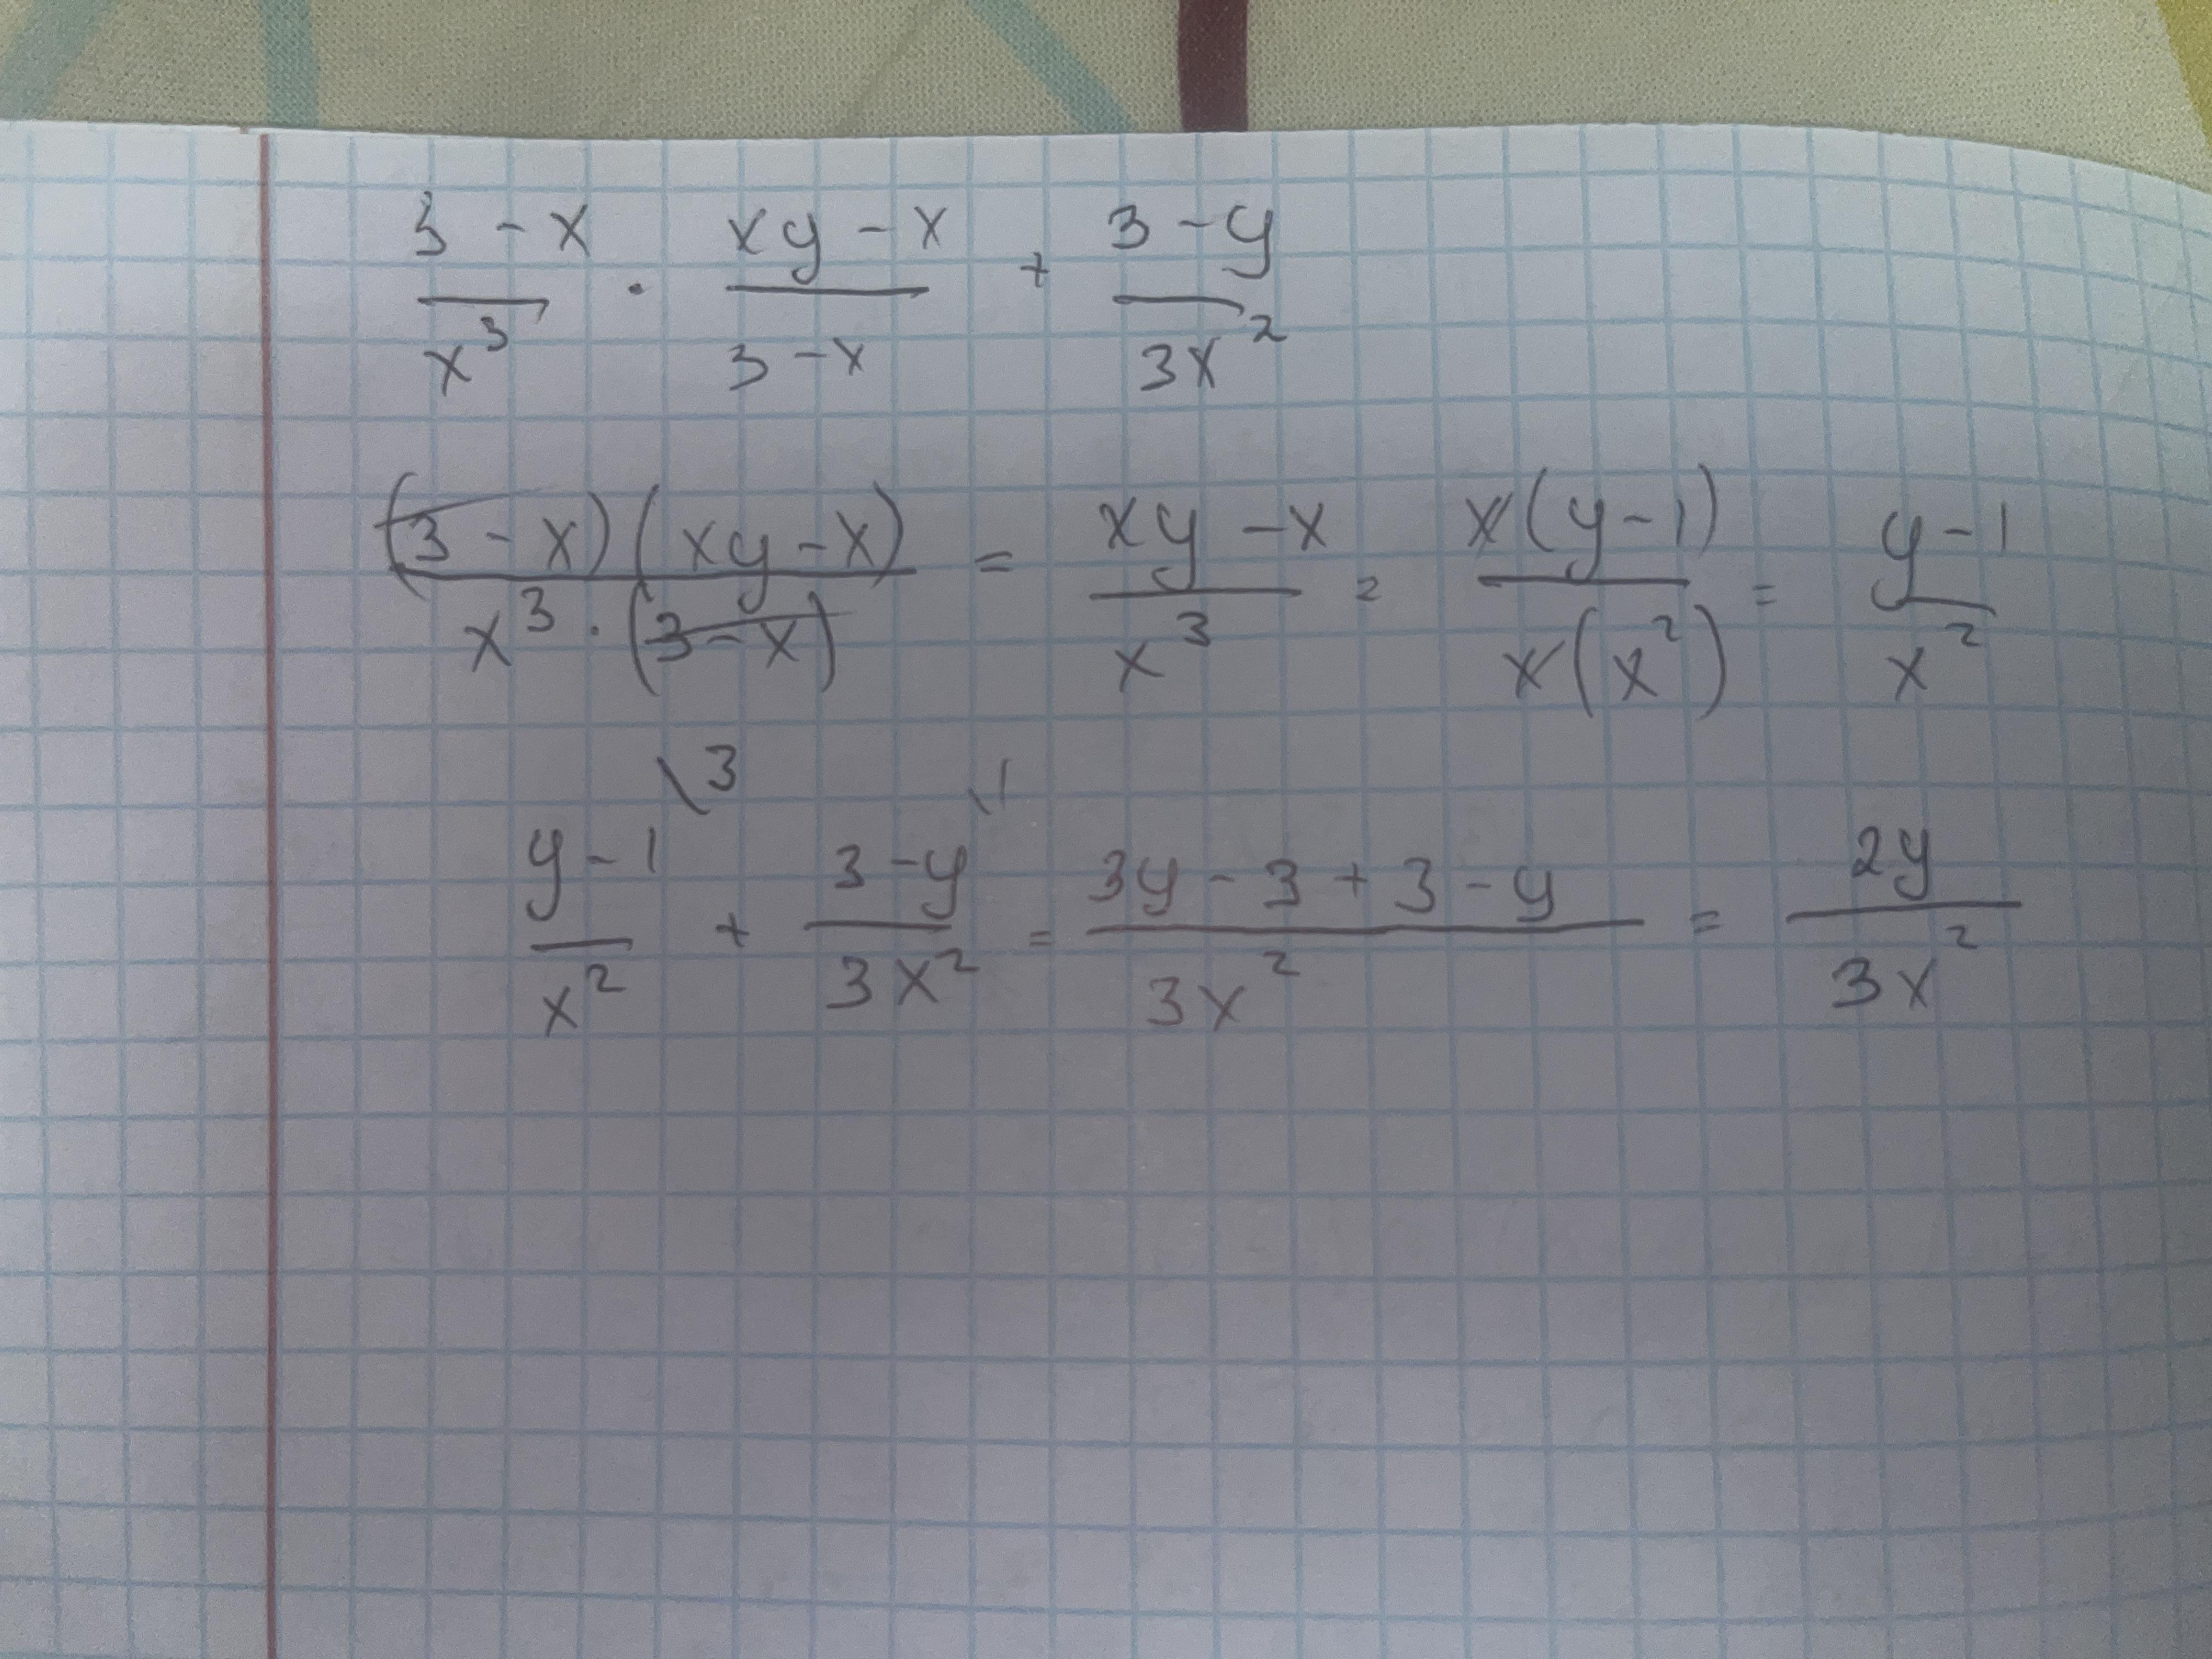 (3 - x)/x³ · (xy - x)/(3 - x) + (3 - y)/(3x²)
((3 - x)(xy - x))/(x³ · (3 - x)) = (xy - x)/x³ = (x(y - 1))/(x(x²)) = (y - 1)/x²
(y - 1)/x² \3 + (3 - y)/(3x²) \1 = (3y - 3 + 3 - y)/(3x²) = 2y/(3x²)